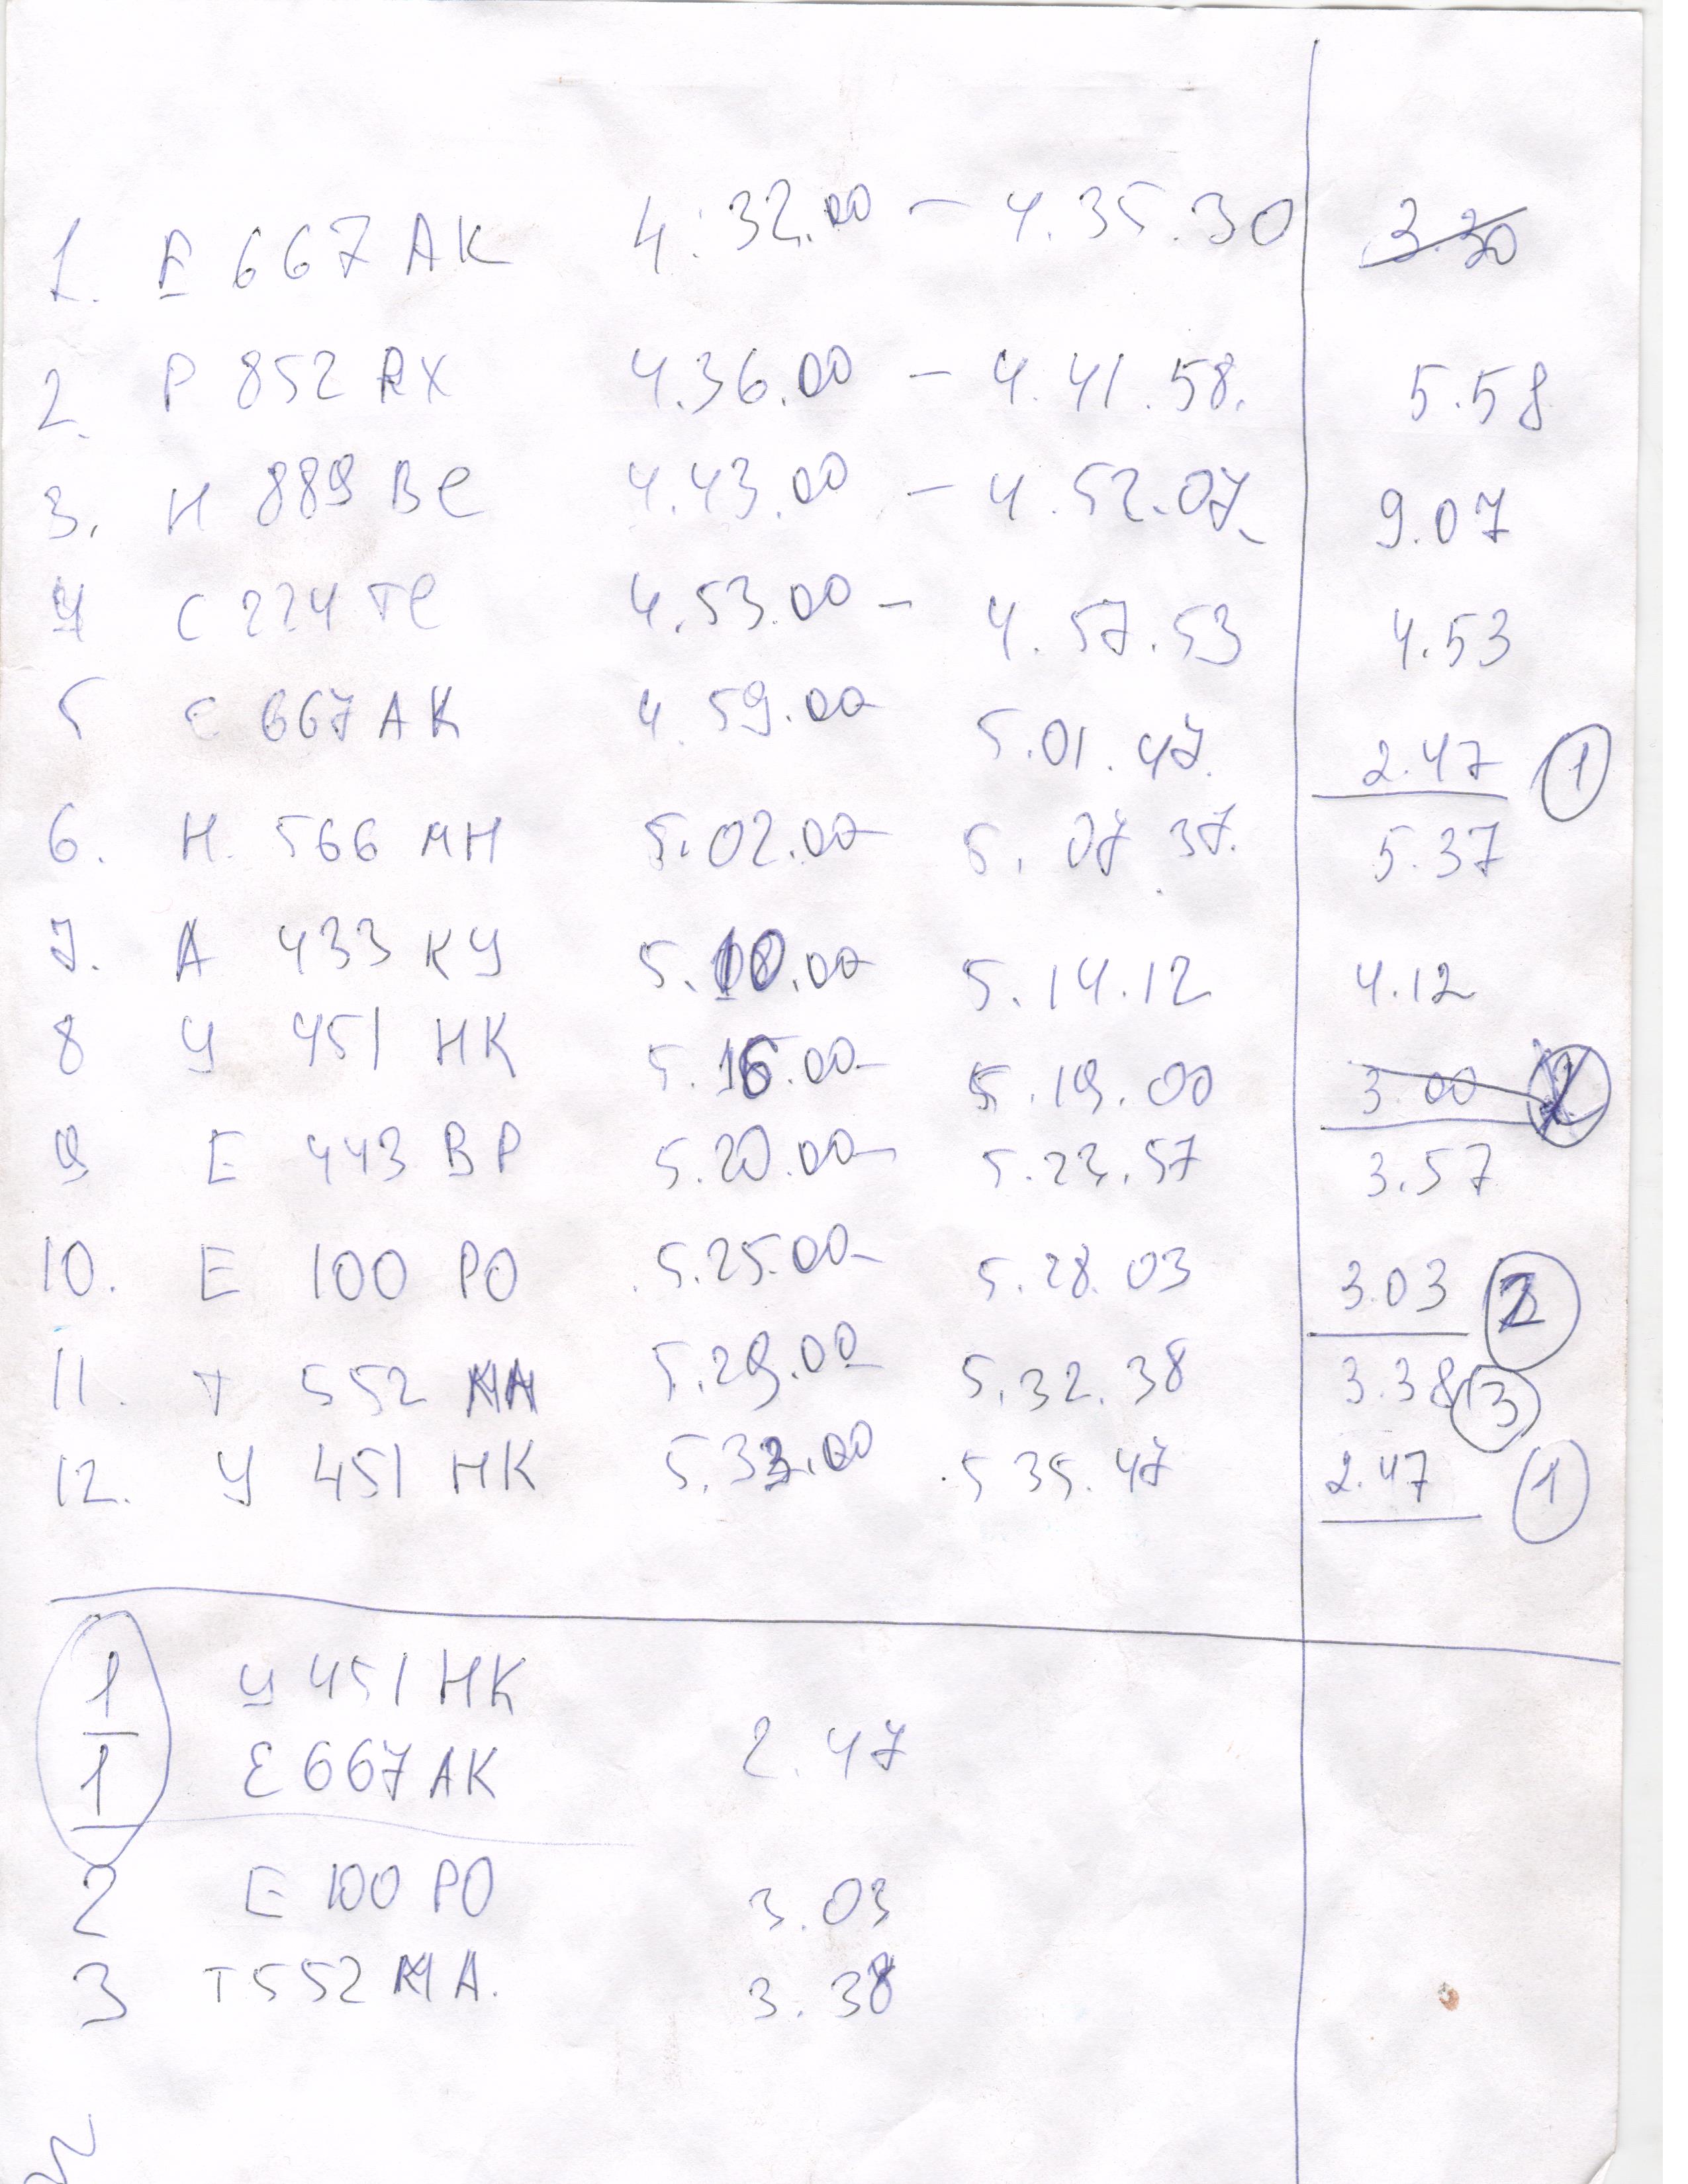 1. Е 667 АК 4:32.00 – 4.35.30 3.30
2. Р 852 АХ 4.36.00 – 4.41.58. 5.58
3. Н 889 ВС 4.43.00 – 4.52.07 9.07
4 С 224 ТС 4.53.00 – 4.57.53 4.53
5 С 667 АК 4.59.00– 5.01.47. 2.47 1
6. Н. 566 МН 5.02.00– 5.07 37. 5.37
7. А 433 КУ 5.10.00– 5.14.12 4.12
8 У 451 НК 5.16.00– 5.19.00 3.00
9 Е 443 ВР 5.20.00– 5.23.57 3.57
10. Е 100 РО 5.25.00– 5.28.03 3.03 2
11. Т 552 МА 5.29.00– 5.32.38 3.38 3
12. У 451 НК 5.33.00 5 35.47 2.47 1
1 У 451 НК
1 Е 667 АК 2.47
2 Е 100 РО 3.03
3 Т 552 МА. 3.38